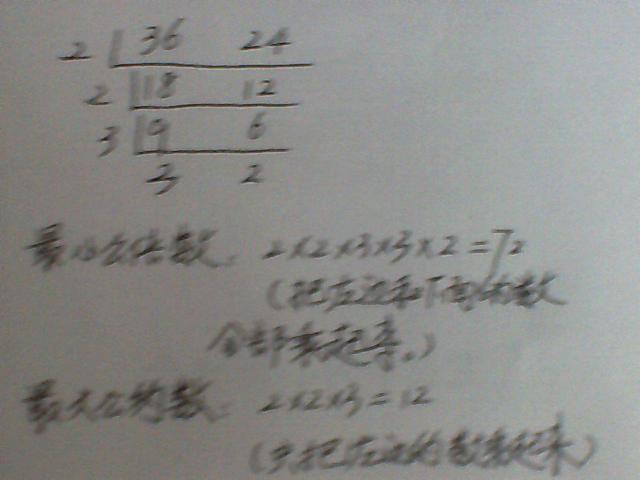 2 36 24
2 18 12
3 9 6
3 2
最小公倍数: 2×2×3×3×2=72
(把左边和下面的数
全部乘起来。)
最大公约数: 2×2×3=12
(只把左边的数乘起来)